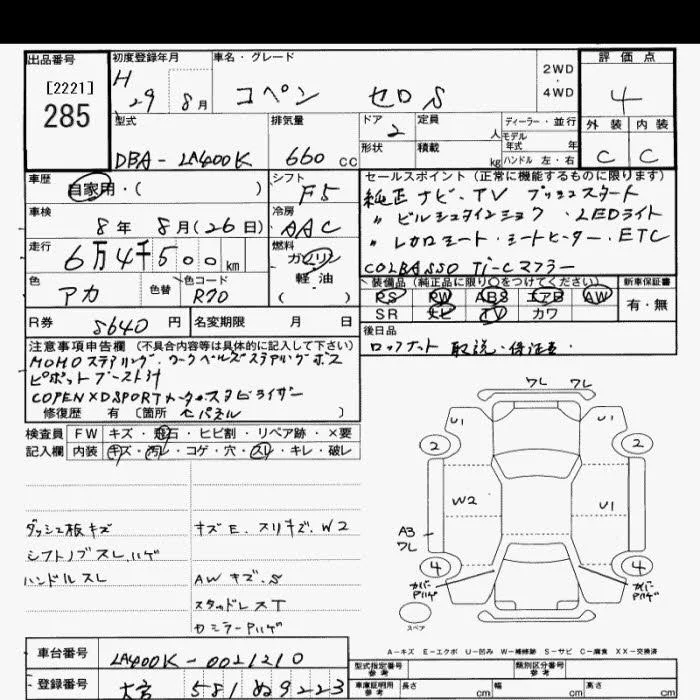 出品番号
[2221]
285
初度登録年月
H 29 8月
車名・グレード
コペン セロ S
2WD
・
4WD
評価点
4
外装 内装
C C
型式
DBA-LA400K
排気量
660 cc
ドア
2
定員
人
形状
積載
kg
ディーラー・並行
モデル
年式 年
ハンドル 左・右
車歴
自家用・( )
シフト
F5
車検
8年 8月(26日)
冷房
AAC
走行
6万4千500km
燃料
ガソリン
軽油
( )
色
アカ
色替
色コード
R70
R券
5640円
名変期限 月 日
セールスポイント(正常に機能するものに限ります)
純正ナビ・TV プッシュスタート
〃 ビルシュタインショック ・LEDライト
〃 レカロシート・シートヒーター・ETC
COLBASSO Ti-Cマフラー
装備品(純正品に限り○をつけてください)
PS PW ABS エアB AW
SR ナビ TV カワ
新車保証書
有・無
後日品
ロックナット 取説・保証書・
注意事項申告欄(不具合内容等は具体的に記入して下さい)
MOMOステアリング・ワークベルズステアリングボス
ピボットブースト計
COPEN×DSPORTメーター・スタビライザー
修復歴 有 〔箇所 Cパネル 〕
検査員
記入欄
FW キズ・飛石・ヒビ割・リペア跡・×要
内装 キズ・汚レ・コゲ・穴・スレ・キレ・破レ
ダッシュ板キズ
シフトノブスレ、ハゲ
ハンドルスレ
キズE、スリキズ、W2
AWキズ、S
スタッドレスT
Dミラー Pハゲ
ワレ ワレ
U1 U1
2 2
W2 U1
A3
ワレ
4 4
カバー
Pハゲ
カバー
Pハゲ
スペア
A-キズ E-エクボ U-凹み W-補修跡 S-サビ C-腐食 XX-交換済
車台番号
LA400K-0021210
登録番号
大宮 581 ぬ 9223
型式指定番号
参考
類別区分番号
参考
車庫証明用
参考
長さ cm 幅 cm 高さ cm